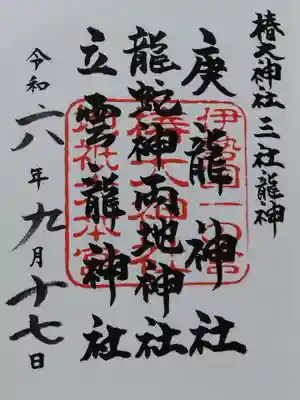 椿大神社三社龍神
庚龍神社
龍蛇神雨地神社
立雲龍神社
令和六年九月十七日
伊勢国一宮